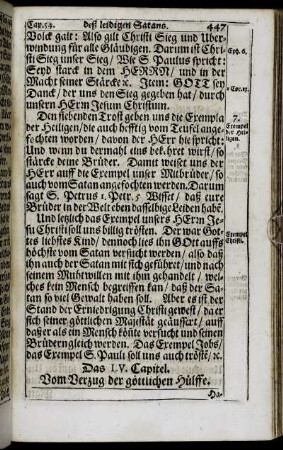 Cap. 54. deß leidigen Satans. 447
Volck galt: Also gilt Christi Sieg und Uber-
windung für alle Gläubigen. Darum ist Chri-
sti Sieg unser Sieg/ Wie S. Paulus spricht: Eph. 6.
Seyd starck in dem HERRN/ und in der
Macht seiner Stärcke ꝛc. Item: GOTT sey
Danck/ der uns den Sieg gegeben hat/ durch
unsern HErrn Jesum Christum.
Den siebenden Trost geben uns die Exempla 7.
der Heiligen/ die auch hefftig vom Teufel ange- Exempel
fochten worden/ davon der HErr hie spricht: der Hei-
Und wenn du dermahl eins bekehret wirst/ so ligen.
stärcke deine Brüder. Damit weiset uns der
HErr auff die Exempel unser Mitbrüder/ so
auch vom Satan angefochten werden. Darum
sagt S. Petrus 1. Petr. 5 Wisset/ daß eure
Brüder in der Welt eben dasselbige Leiden habē.
Und letzlich das Exempel unsers HErrn Je-
su Christi soll uns billig trösten. Der war Got-
tes liebstes Kind/ dennoch ließ ihn GOtt auffs Exempel
höchste vom Satan versucht werden/ also daß Christi.
ihn auch der Satan mit sich geführet/ und nach
seinem Muthwillen mit ihm gehandelt/ wel-
ches kein Mensch begreiffen kan/ daß der Sa-
tan so viel Gewalt haben soll. Aber es ist der
Stand der Erniedrigung Christi gewest/ da er
sich seiner göttlichen Majestät geäussert/ auff
daß er als ein Mensch könte versucht und seinen
Brüdern gleich werden. Das Exempel Jobs/
das Exempel S. Pauli soll uns auch tröstē/ ꝛc.
Das LV. Capitel.
Vom Verzug der göttlichen Hülffe.